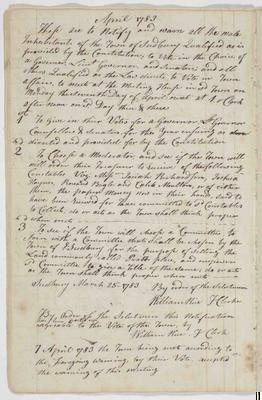 April 1783
These are to Notify and warn all the male
Inhabitants of the Town of Sudbury Qualified as is
provided by the Constitution to Vote in the Choice of
a Governor, Lieut Governor and Senators and all
others Qualified as the Law directs to Vote in Town
affairs to meet at the Meeting House in sd Town on
Monday the seventh Day of April next at 1 o Clock
after noon on sd Day then & there
1 To give in their Votes for a Governor Lt Governor
Councellors & Senators for the Year ensuing as above
directed and provided for by the Constitution
2 To Choose a Moderator and see if the Town will
will order their Treasurer to receive of the following
Constables Viz Isaiah Richardson Joshua
Haynes and Caleb Moulton, or of either
them, the paper Money now in their hands said to
have been received for Taxes committed to sd Constables
to Collect, or act as the Town shall think proper
when met
3 To see if the Town will Choose a Committee to
Join with a Committee that shall be chosen by the
Town of for the purpose of selling the
Land commonly called place, and impower
sd Committee to give a Title of the same, or act
as the Town shall think proper when met
Sudbury March 25 1783 By order of the Selectmen
William Rice T Clerk
By order of the Selectmen this Notification
agreeable to the Vote of the Town, by
William Rice T Clerk
7 April 1783 the Town being met according to
the foregoing warning, by their Vote, accepted
the warning of this meeting